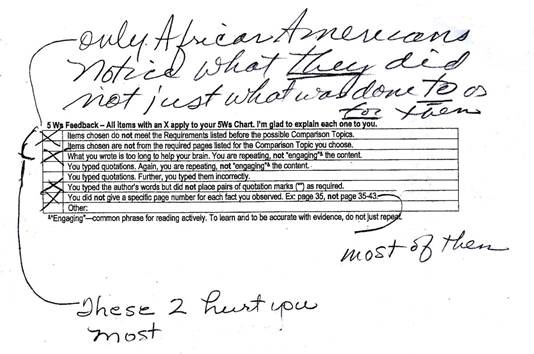 only African Americans
Notice what they did
not just what was done to or
for them
5 Ws Feedback – All items with an X apply to your 5Ws Chart. I'm glad to explain each one to you.
X Items chosen do not meet the Requirements listed before the possible Comparison Topics.
Items chosen are not from the required pages listed for the Comparison Topic you choose.
X What you wrote is too long to help your brain. You are repeating, not "engaging"& the content.
You typed quotations. Again, you are repeating, not "engaging"& the content.
You typed quotations. Further, you typed them incorrectly.
X You typed the author's words but did not place pairs of quotation marks ("") as required.
X You did not give a specific page number for each fact you observed. Ex: page 35, not page 35-43.
Other:
&"Engaging"—common phrase for reading actively. To learn and to be accurate with evidence, do not just repeat.
most of them
These 2 hurt you
most